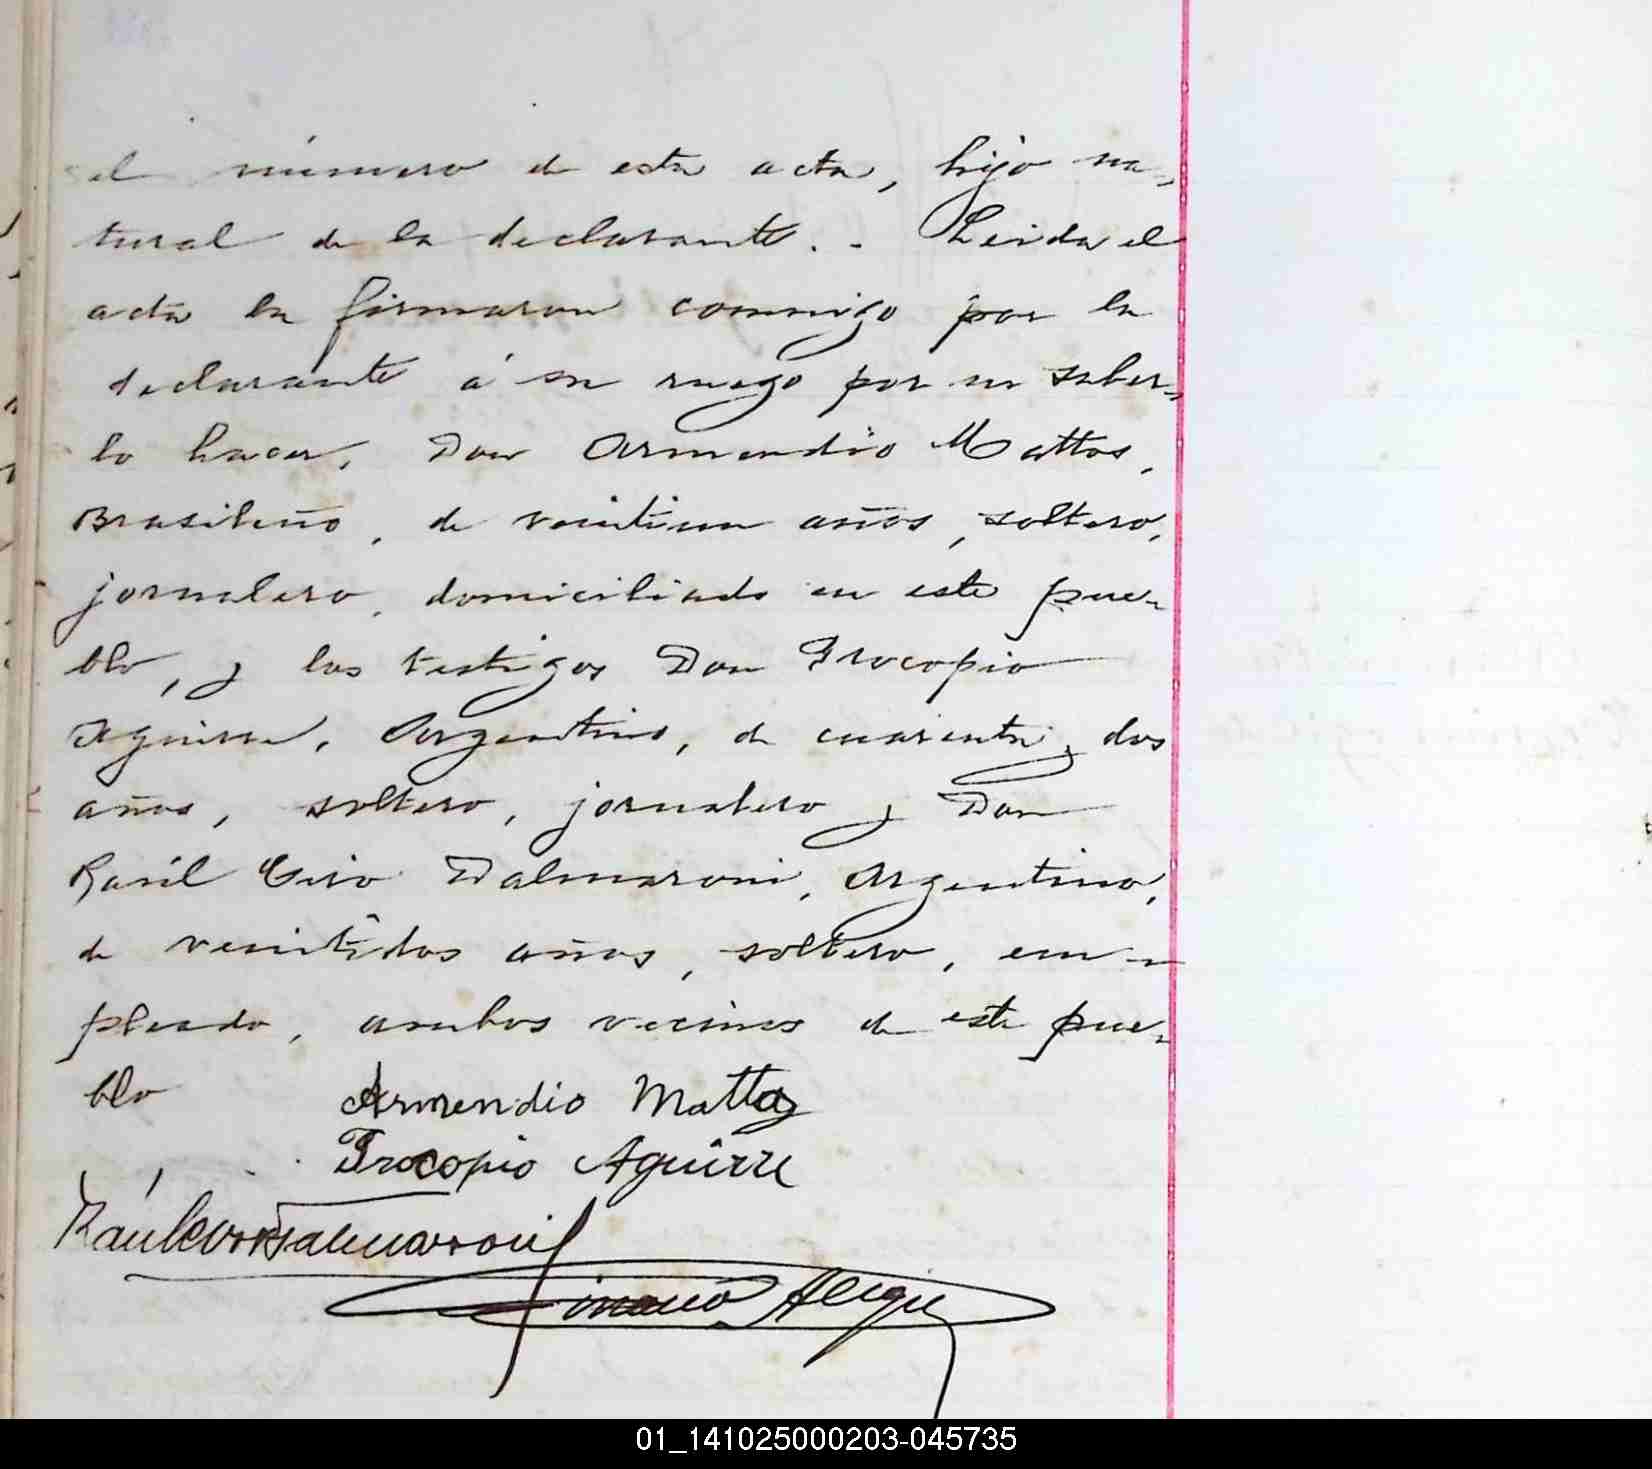 el número de esta acta, hijo na-
tural de la declarante. - Leida el
acta la firmaron conmigo por la
declarante á su ruego por no saber-
lo hacer, Don Armendio Mattos,
Brasileño, de veintiun años, soltero,
jornalero, domiciliado en este pue-
blo, y los testigos Don Procopio
Aguirre, Argentino, de cuarenta y dos
años, soltero, jornalero y Don
Raúl Ciro Dalmaroni, Argentino,
de veintidos años, soltero, em-
pleado, ambos vecinos de este pue-
blo
Armendio Mattos
Procopio Aguirre
Raúl Ciro Dalmaroni
01_141025000203-045735